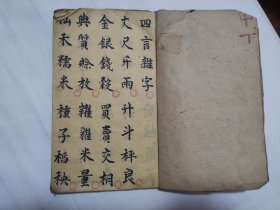 四言雜字
丈尺斤兩 升斗秤良
金銀錢穀 買賣交相
典質賒放 糴糶米量
禾糯米 種子稻秧